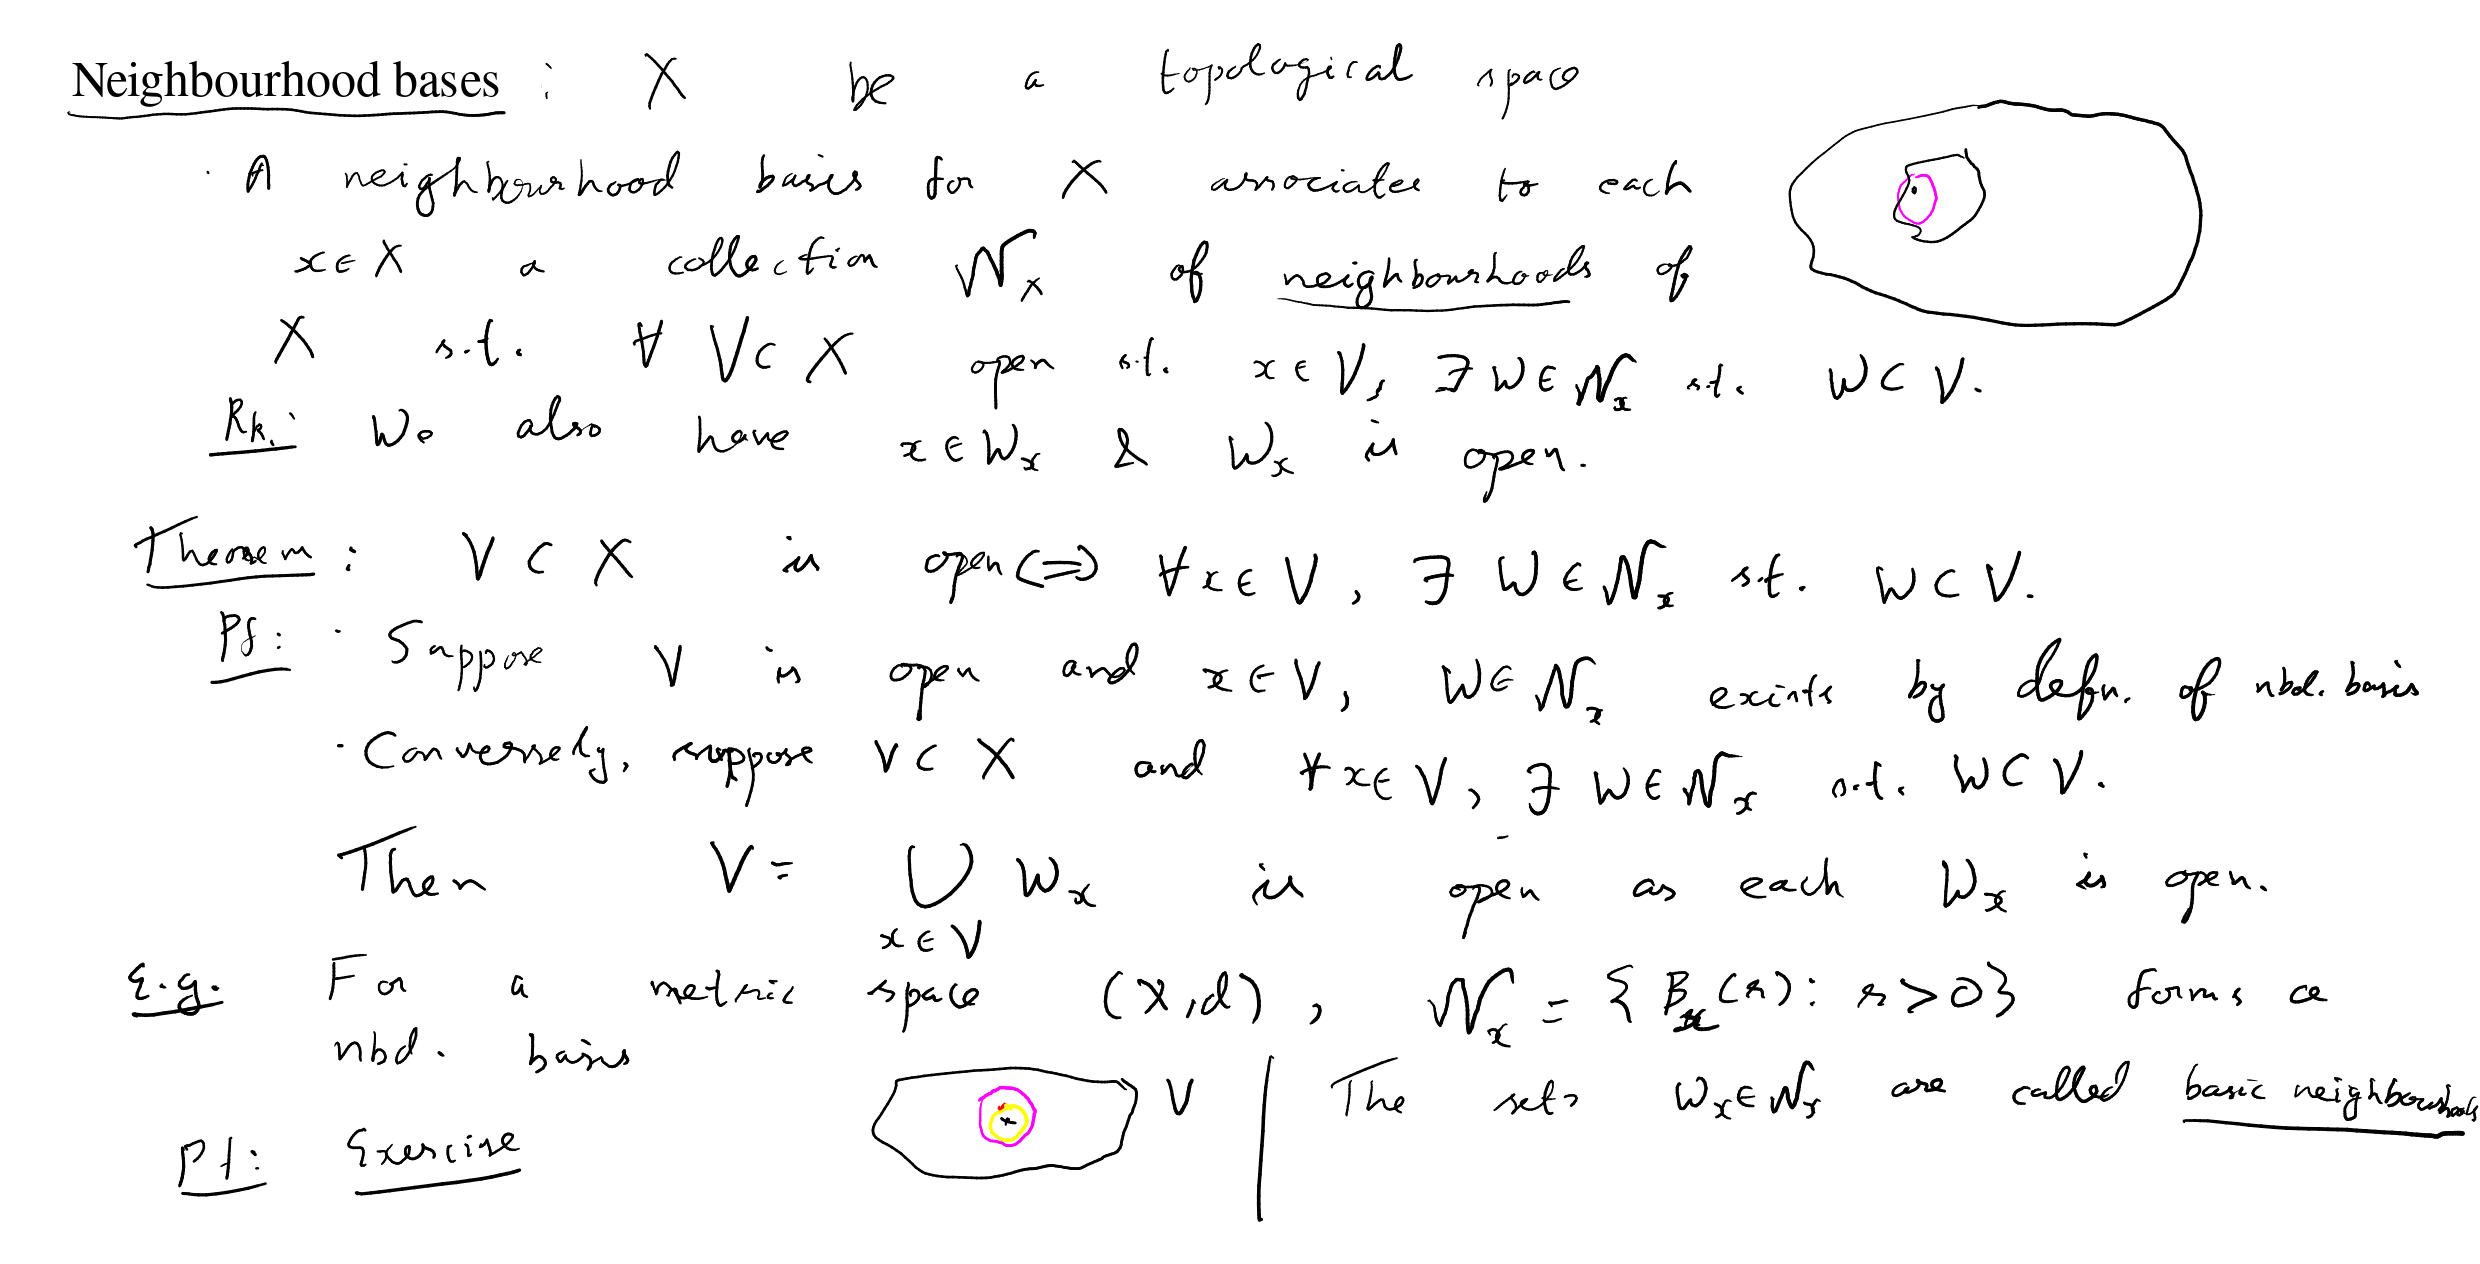 Neighbourhood bases : X be a topological space
· A neighbourhood basis for X associates to each
x ∈ X a collection 𝒩_x of neighbourhoods of
X s.t. ∀ V ⊂ X open s.t. x ∈ V, ∃ W ∈ 𝒩_x s.t. W ⊂ V.
Rk.: We also have x ∈ W_x & W_x is open.
Theorem : V ⊂ X is open ⟺ ∀ x ∈ V, ∃ W ∈ 𝒩_x s.t. W ⊂ V.
Pf: · Suppose V is open and x ∈ V, W ∈ 𝒩_x exists by defn. of nbd. basis
· Conversely, suppose V ⊂ X and ∀ x ∈ V, ∃ W ∈ 𝒩_x s.t. W ⊂ V.
Then V = ⋃_{x ∈ V} W_x is open as each W_x is open.
E.g. For a metric space (X,d), 𝒩_x = { B_x(r) : r > 0 } forms a
nbd. basis
V
The sets W_x ∈ 𝒩_x are called basic neighbourhoods
Pf: Exercise